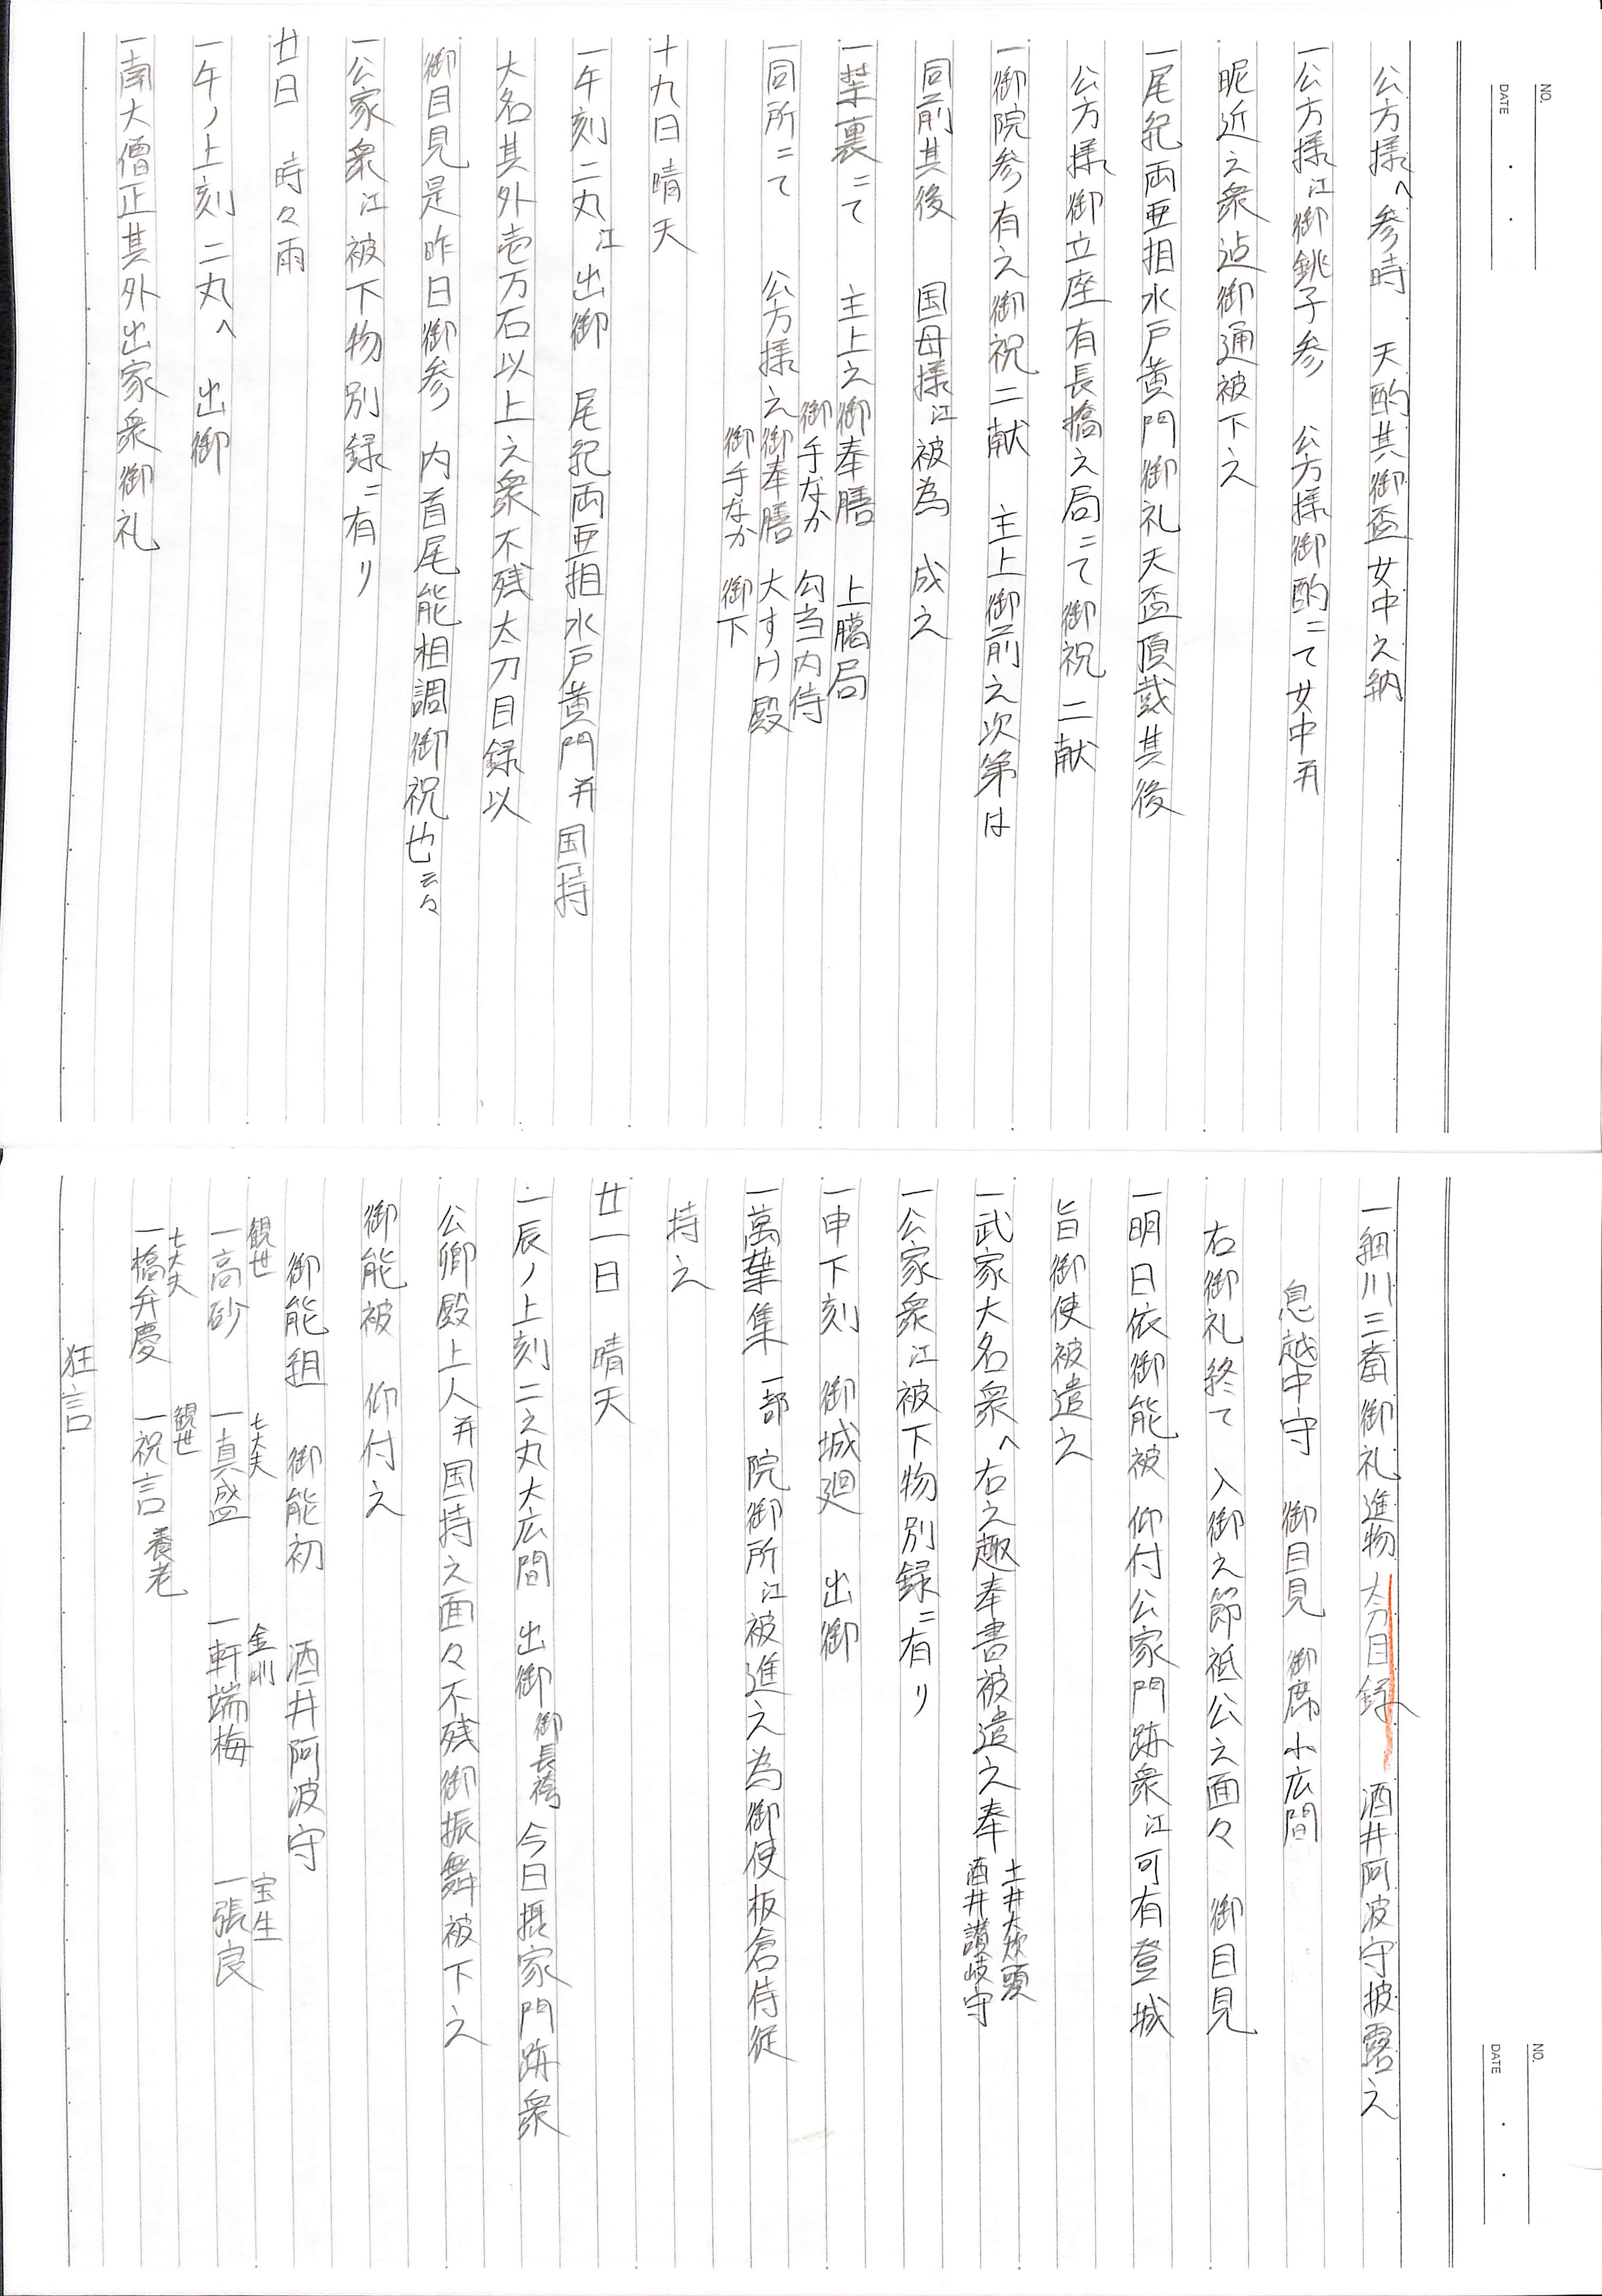 NO.
DATE
公方様へ参時 天酌其御盃女中之納
一公方様江御銚子参 公方様御酌ニて女中并
昵近之衆迠御通被下之
一尾紀両亜相水戸黄門御礼天盃頂戴其後
公方様御立座有長橋之局ニて御祝二献
一御院参有之御祝二献 主上御前之次第は
同前其後 国母様江被為 成之
一禁裏ニて 主上之御奉膳 上臈局
御手なか 勾当内侍
一同所ニて 公方様之御奉膳 大すけ殿
御手なか 御下
十九日晴天
一午刻二丸江出御 尾紀両亜相水戸黄門并国持
大名其外壱万石以上之衆不残太刀目録以
御目見是昨日御参 内首尾能相調御祝也云々
一公家衆江被下物別録ニ有リ
廿日 時々雨
一午ノ上刻二丸へ 出御
一南大僧正其外出家衆御礼
NO.
DATE
一細川三斎御礼進物太刀目録 酒井阿波守披露之
息越中守 御目見 御席小広間
右御礼終て 入御之節祗公之面々 御目見
一明日依御能被 仰付公家門跡衆江可有登城
旨御使被遣之
一武家大名衆へ右之趣奉書被遣之奉 土井大炊頭
酒井讃岐守
一公家衆江被下物別録ニ有リ
一申下刻 御城廻 出御
一萬葉集 一部 院御所江被進之為御使板倉侍従
持之
廿一日 晴天
一辰ノ上刻二之丸大広間 出御 御長袴 今日摂家門跡衆
公卿殿上人并国持之面々不残御振舞被下之
御能被 仰付之
御能組 御能初 酒井阿波守
観世 七大夫 金剛 宝生
一高砂 一真盛 一軒端梅 一張良
七大夫 観世
一橋弁慶 一祝言 養老
狂言